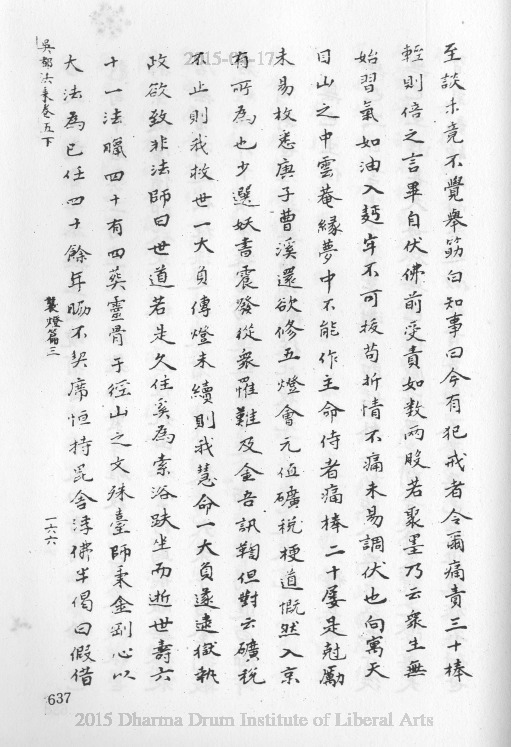 至談未竟不覺舉筯白知事曰今有犯戒者令爾痛責三十棒
輕則倍之言畢自伏佛前受責如數兩股若聚墨乃云眾生無
始習氣如油入麵牢不可拔苟折情不痛未易調伏也向寓天
目山之中雲菴緣夢中不能作主命侍者痛棒二十屡是尅勵
未易枚悉庚子曹溪還欲修五燈會元值礦稅梗道慨然入京
有所為也少選妖書震發從眾羅難及金吾訊鞠但對云礦稅
不止則我救世一大負傳燈未續則我慧命一大負遂逮獄執
政欲致非法師曰世道若是久住奚為索浴趺坐而逝世壽六
十一法臘四十有四葬靈骨于徑山之文殊臺師秉金剛心以
大法為已任四十餘年脇不契席恒持毘舍浮佛半偈曰假借
吳都法乘卷五下
襲燈篇三
一六六
637
2015-04-17
2015 Dharma Drum Institute of Liberal Arts